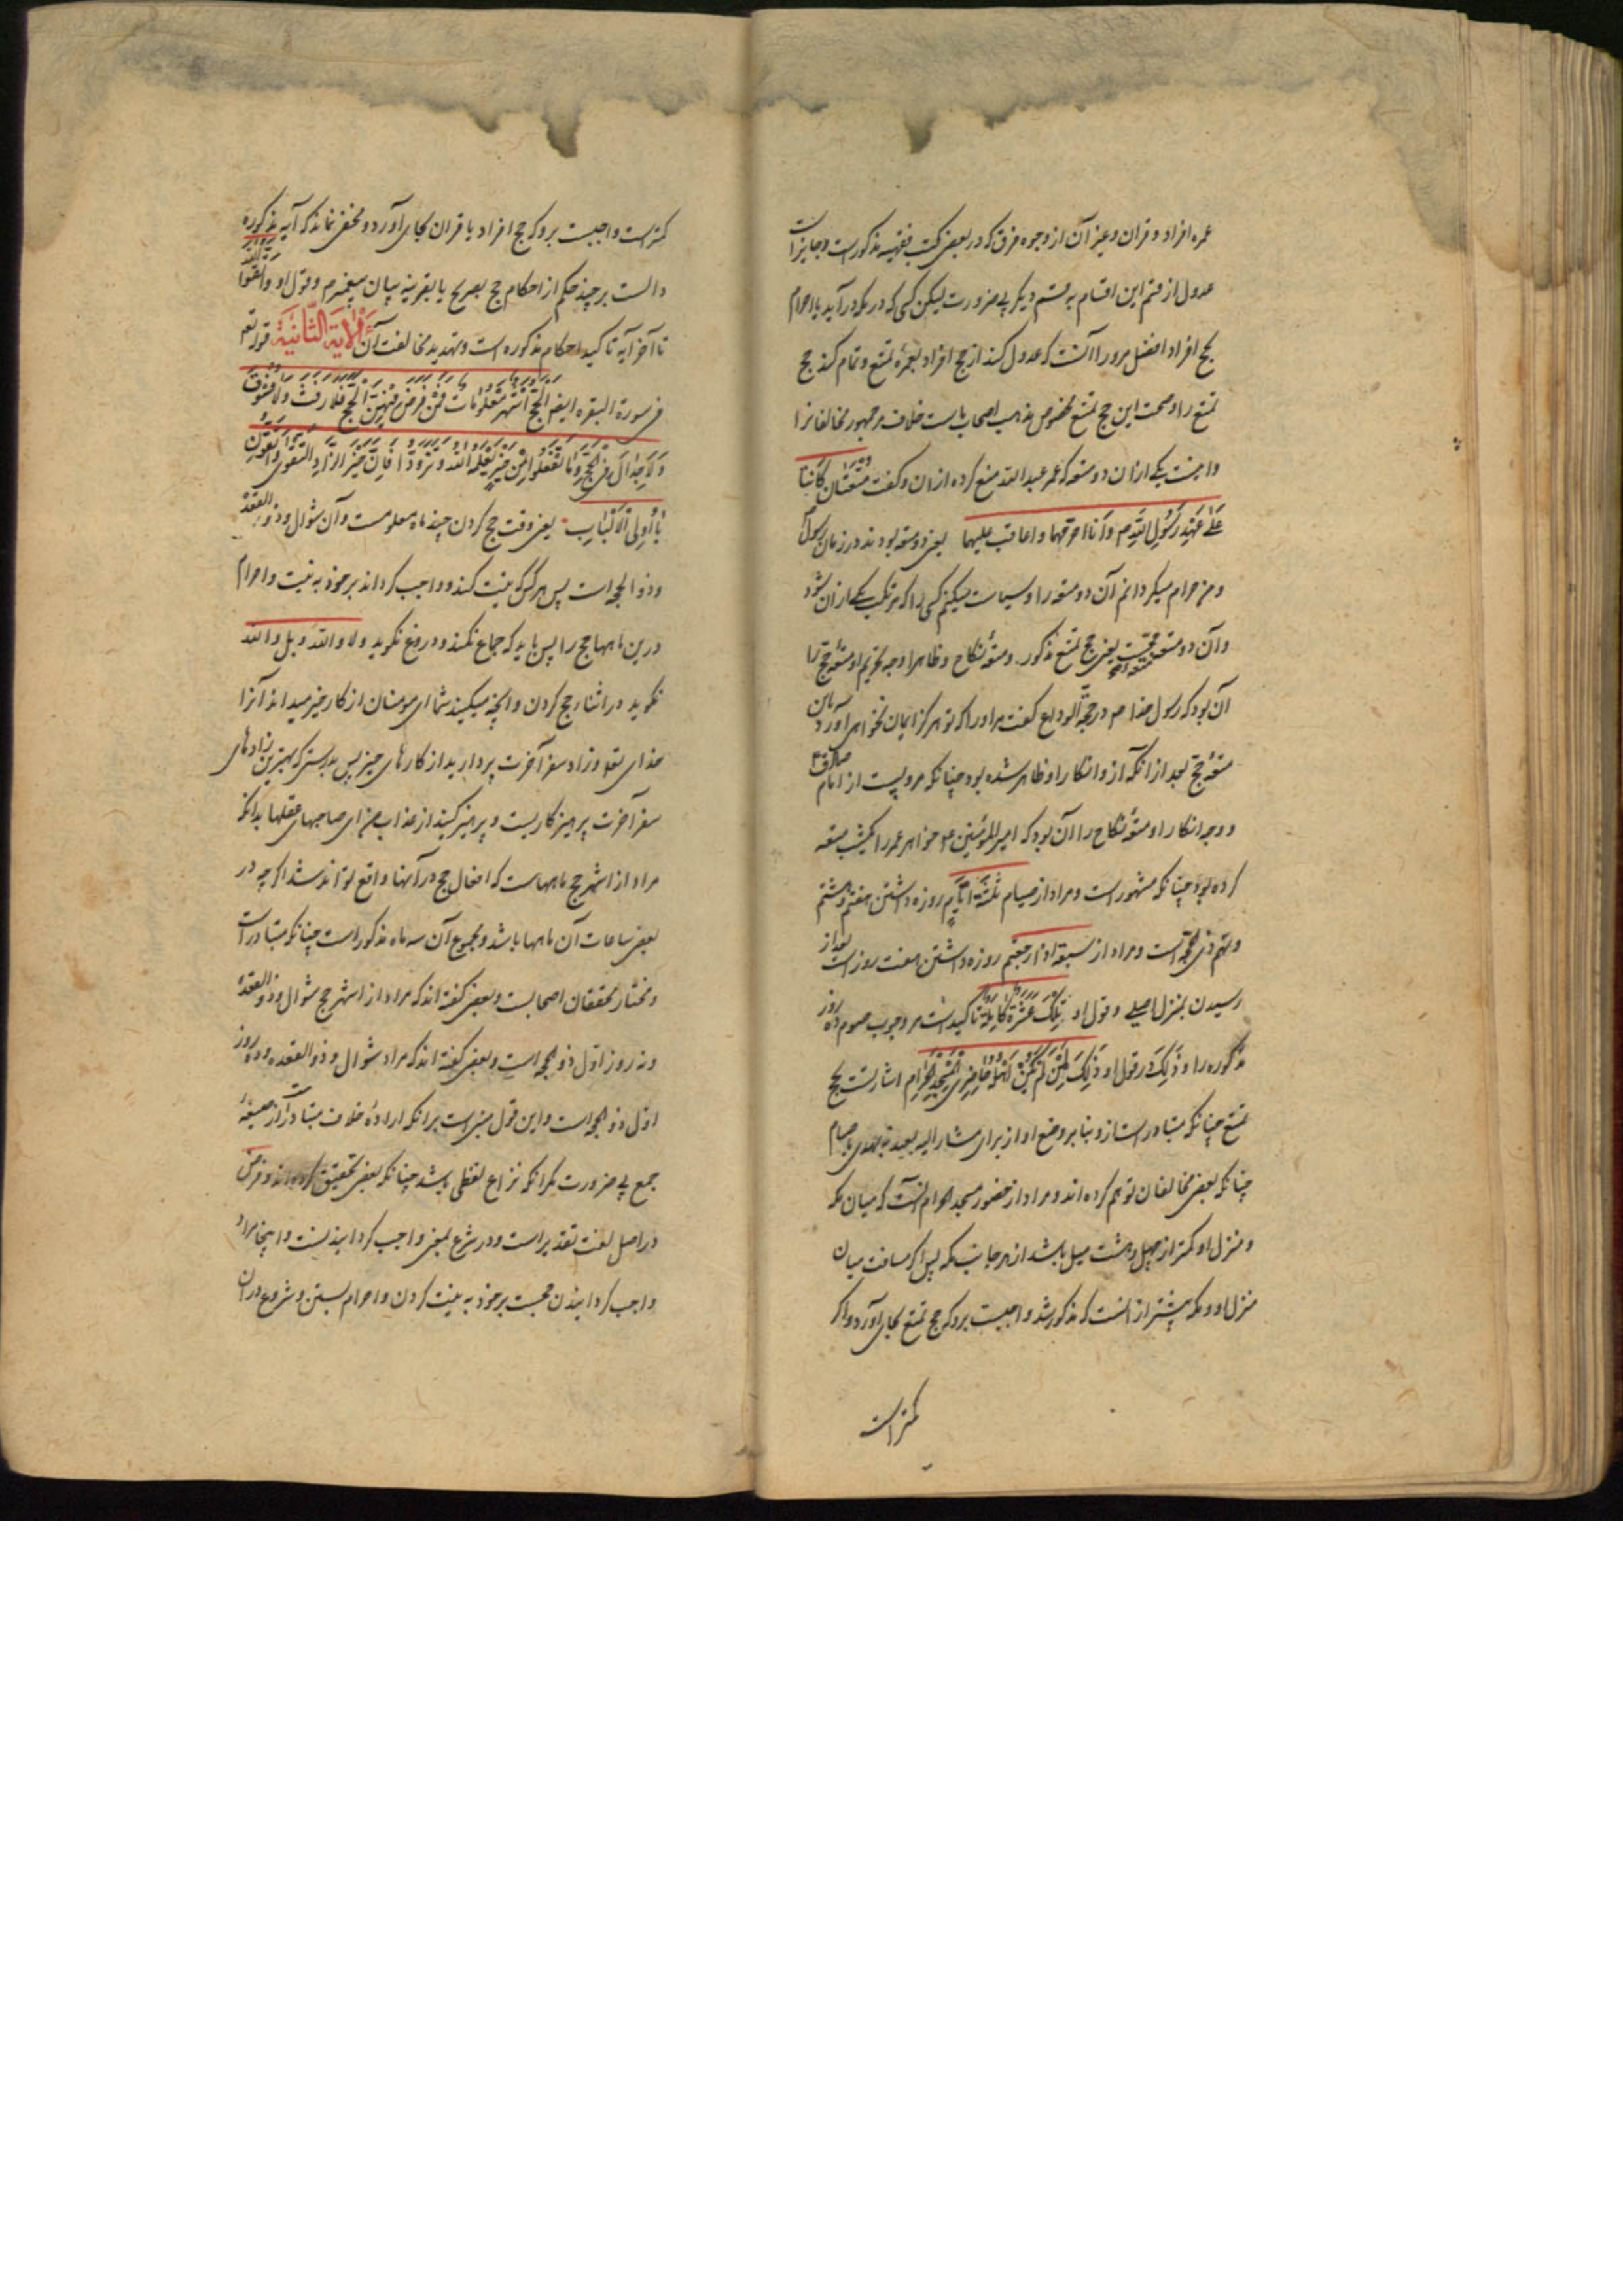 عمره افراد و قران و غیر آن از وجوه فرق که در بعضی کتب فقهیه مذکورست و جایز است
عدول از قسم این اقسام به قسم دیگر بی ضرورت لیکن کسی که در مکه درآید با احرام
حج افراد افضل مرورا آنست که عدول کند از حج افراد بعمرهٔ تمتع و تمام کند حج
تمتع را و صحت این حج تمتع مخصوص مذهب اصحاب ماست خلاف مر جمهور مخالفانرا
و اینست یکی از ان دو متعه که عمر علیه منع کرده از ان و گفت مُتعَتان کانَتا
عَلیٰ عَهْدِ رَسُولِ اللهِ ص وَ اَنا احرّمهما و اعاقب علیهما یعنی دو متعه بودند در زمان رسول
و من حرام میگردانم آن دو متعه را و سیاست میکنم کسی را که مرتکب یکی از ان شود
و آن دو متعه یعنی حج تمتع مذکور و متعهٔ نکاح و ظاهرا وجه تحریم او متعهٔ حج را
آن بود که رسول خدا ص در حجة الوداع گفت مر اورا که تو هرگز ایمان نخواهی آورد بان
متعهٔ حج بعد از آنکه از و انکار او ظاهر شده بود چنانکه مرویست از امام صادق ع
و وجه انکار او متعهٔ نکاح را آن بود که امیرالمؤمنین ع خواهر عمر را یکشب متعه
کرده بود چنانکه مشهور است و مراد از صیام ثَلٰثَةِ اَیّامٍ روزه داشتن هفتم و هشتم
و نهم ذی حجه است و مراد از سبعة اذا رجعتم روزه داشتن هفت روز است بعد از
رسیدن بمنزل اصلی و قول او تِلْکَ عَشَرَةٌ کامِلَةٌ تاکیدست مر وجوب صوم ده روز
مذکوره را و ذٰلِکَ در قول او ذٰلِکَ لِمَنْ لَمْ یَکُنْ اَهْلُهُ حاضِرِی الْمَسْجِدِ الْحَرامِ اشارتست بحج
تمتع چنانکه متبادر است از و بنا بر وضع او از برای مشار الیه بعید نه بهدی یا صیام
چنانکه بعضی مخالفان توهم کرده اند و مراد از حضور مسجد الحرام آنست که میان مکه
و منزل او کمتر از چهل و هشت میل باشد از هر جانب مکه پس اگر مسافت میان
منزل او و مکه بیشتر از آنست که مذکور شد واجبست برو که حج تمتع بجای آورد و اگر
کمتر است
کمتر است واجبست برو که حج افراد یا قران بجای آورد و مخفی نماند که آیه مذکوره
دالست بر چند حکم از احکام حج بصریح یا بقرینه بیان پیغمبر ص و قول او وَاتَّقُوا اللّٰهَ
تا آخر آیه تاکید احکام مذکوره است و تهدید مخالفت آن اَلْآیَةُ الثّانِیَةُ قوله تع
فی سورة البقره ایضا اَلْحَجُّ اَشْهُرٌ مَعْلُوماتٌ فَمَنْ فَرَضَ فِیهِنَّ الْحَجَّ فَلا رَفَثَ وَلا فُسُوقَ
وَلا جِدالَ فِی الْحَجِّ وَما تَفْعَلُوا مِنْ خَیْرٍ یَعْلَمْهُ اللّٰهُ وَتَزَوَّدُوا فَاِنَّ خَیْرَ الزّادِ التَّقْوٰی وَاتَّقُونِ
یا اُولِی الْاَلْبابِ یعنی وقت حج کردن چند ماه معلومست و آن شوال و ذو القعده
و ذو الحجه است پس هر کس که نیت کند و واجب گرداند بر خود به نیت و احرام
درین ماهها حج را پس باید که جماع نکند و دروغ نگوید و لا والله و بلی والله
نگوید در اثناء حج کردن و آنچه میکنید شما ای مومنان از کار خیر میداند آنرا
خدای تعالی و زاد سفر آخرت بردارید از کارهای خیر پس بدرستی که بهترین زادهای
سفر آخرت پرهیزکاریست و پرهیز کنید از عذاب من ای صاحبهای عقلها بدانکه
مراد از اشهر حج ماههاست که افعال حج در آنها واقع تواند شد اگر چه در
بعضی ساعات آن ماهها باشد و مجموع آن سه ماه مذکور است چنانکه متبادر است
و مختار محققان اصحابست و بعضی گفته اند که مراد از اشهر حج شوال و ذو القعده
و نه روز اول ذو الحجه است و بعضی گفته اند که مراد شوال و ذو القعده و ده روز
اول ذو الحجه است و این قول مبنی است برانکه ارادهٔ خلاف متبادر است از صیغهٔ
جمع بی ضرورت مگر آنکه نزاع لفظی باشد چنانکه بعضی تحقیق کرده اند و فرض
در اصل لغت تقدیر است و در شرع بمعنی واجب گردانیدنست و اینجا مراد
واجب گردانیدن حجست بر خود به نیت کردن و احرام بستن و شروع در آن